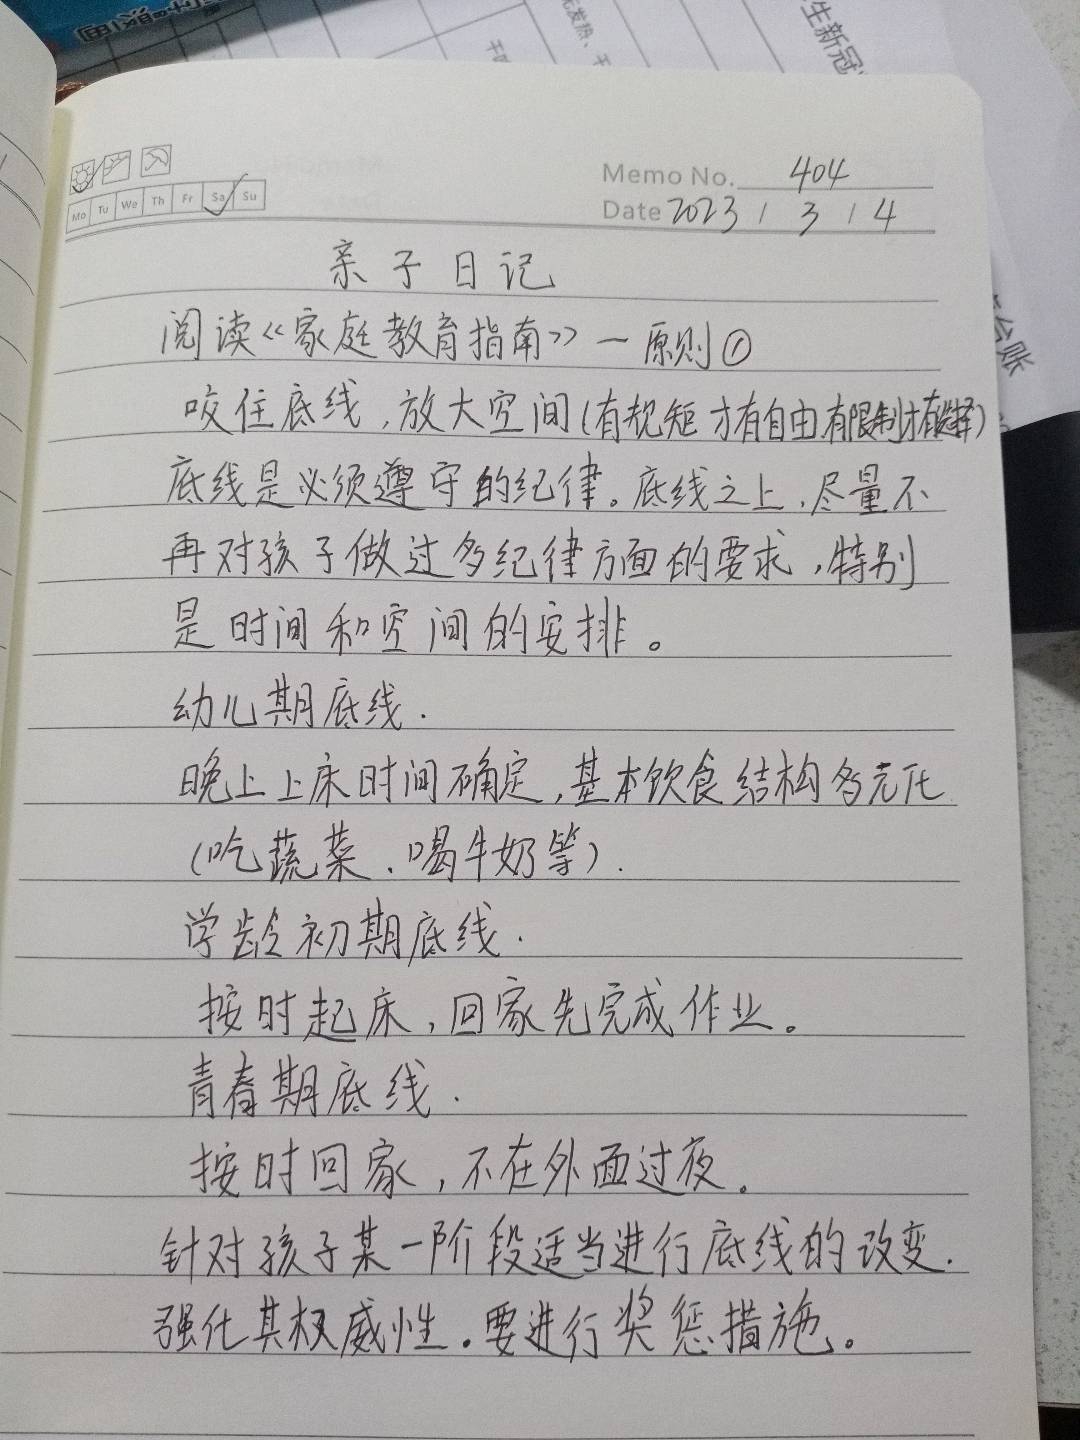 发热、干
生新冠
台账
Memo No. 404
Mo Tu We Th Fr Sa Su
Date 2023 / 3 / 4
亲子日记
阅读《家庭教育指南》一原则①
咬住底线,放大空间(有规矩才有自由,有限制才有选择)
底线是必须遵守的纪律。底线之上,尽量不
再对孩子做过多纪律方面的要求,特别
是时间和空间的安排。
幼儿期底线.
晚上上床时间确定,基本饮食结构多元化
(吃蔬菜、喝牛奶等).
学龄初期底线.
按时起床,回家先完成作业。
青春期底线.
按时回家,不在外面过夜。
针对孩子某一阶段适当进行底线的改变.
强化其权威性。要进行奖惩措施。